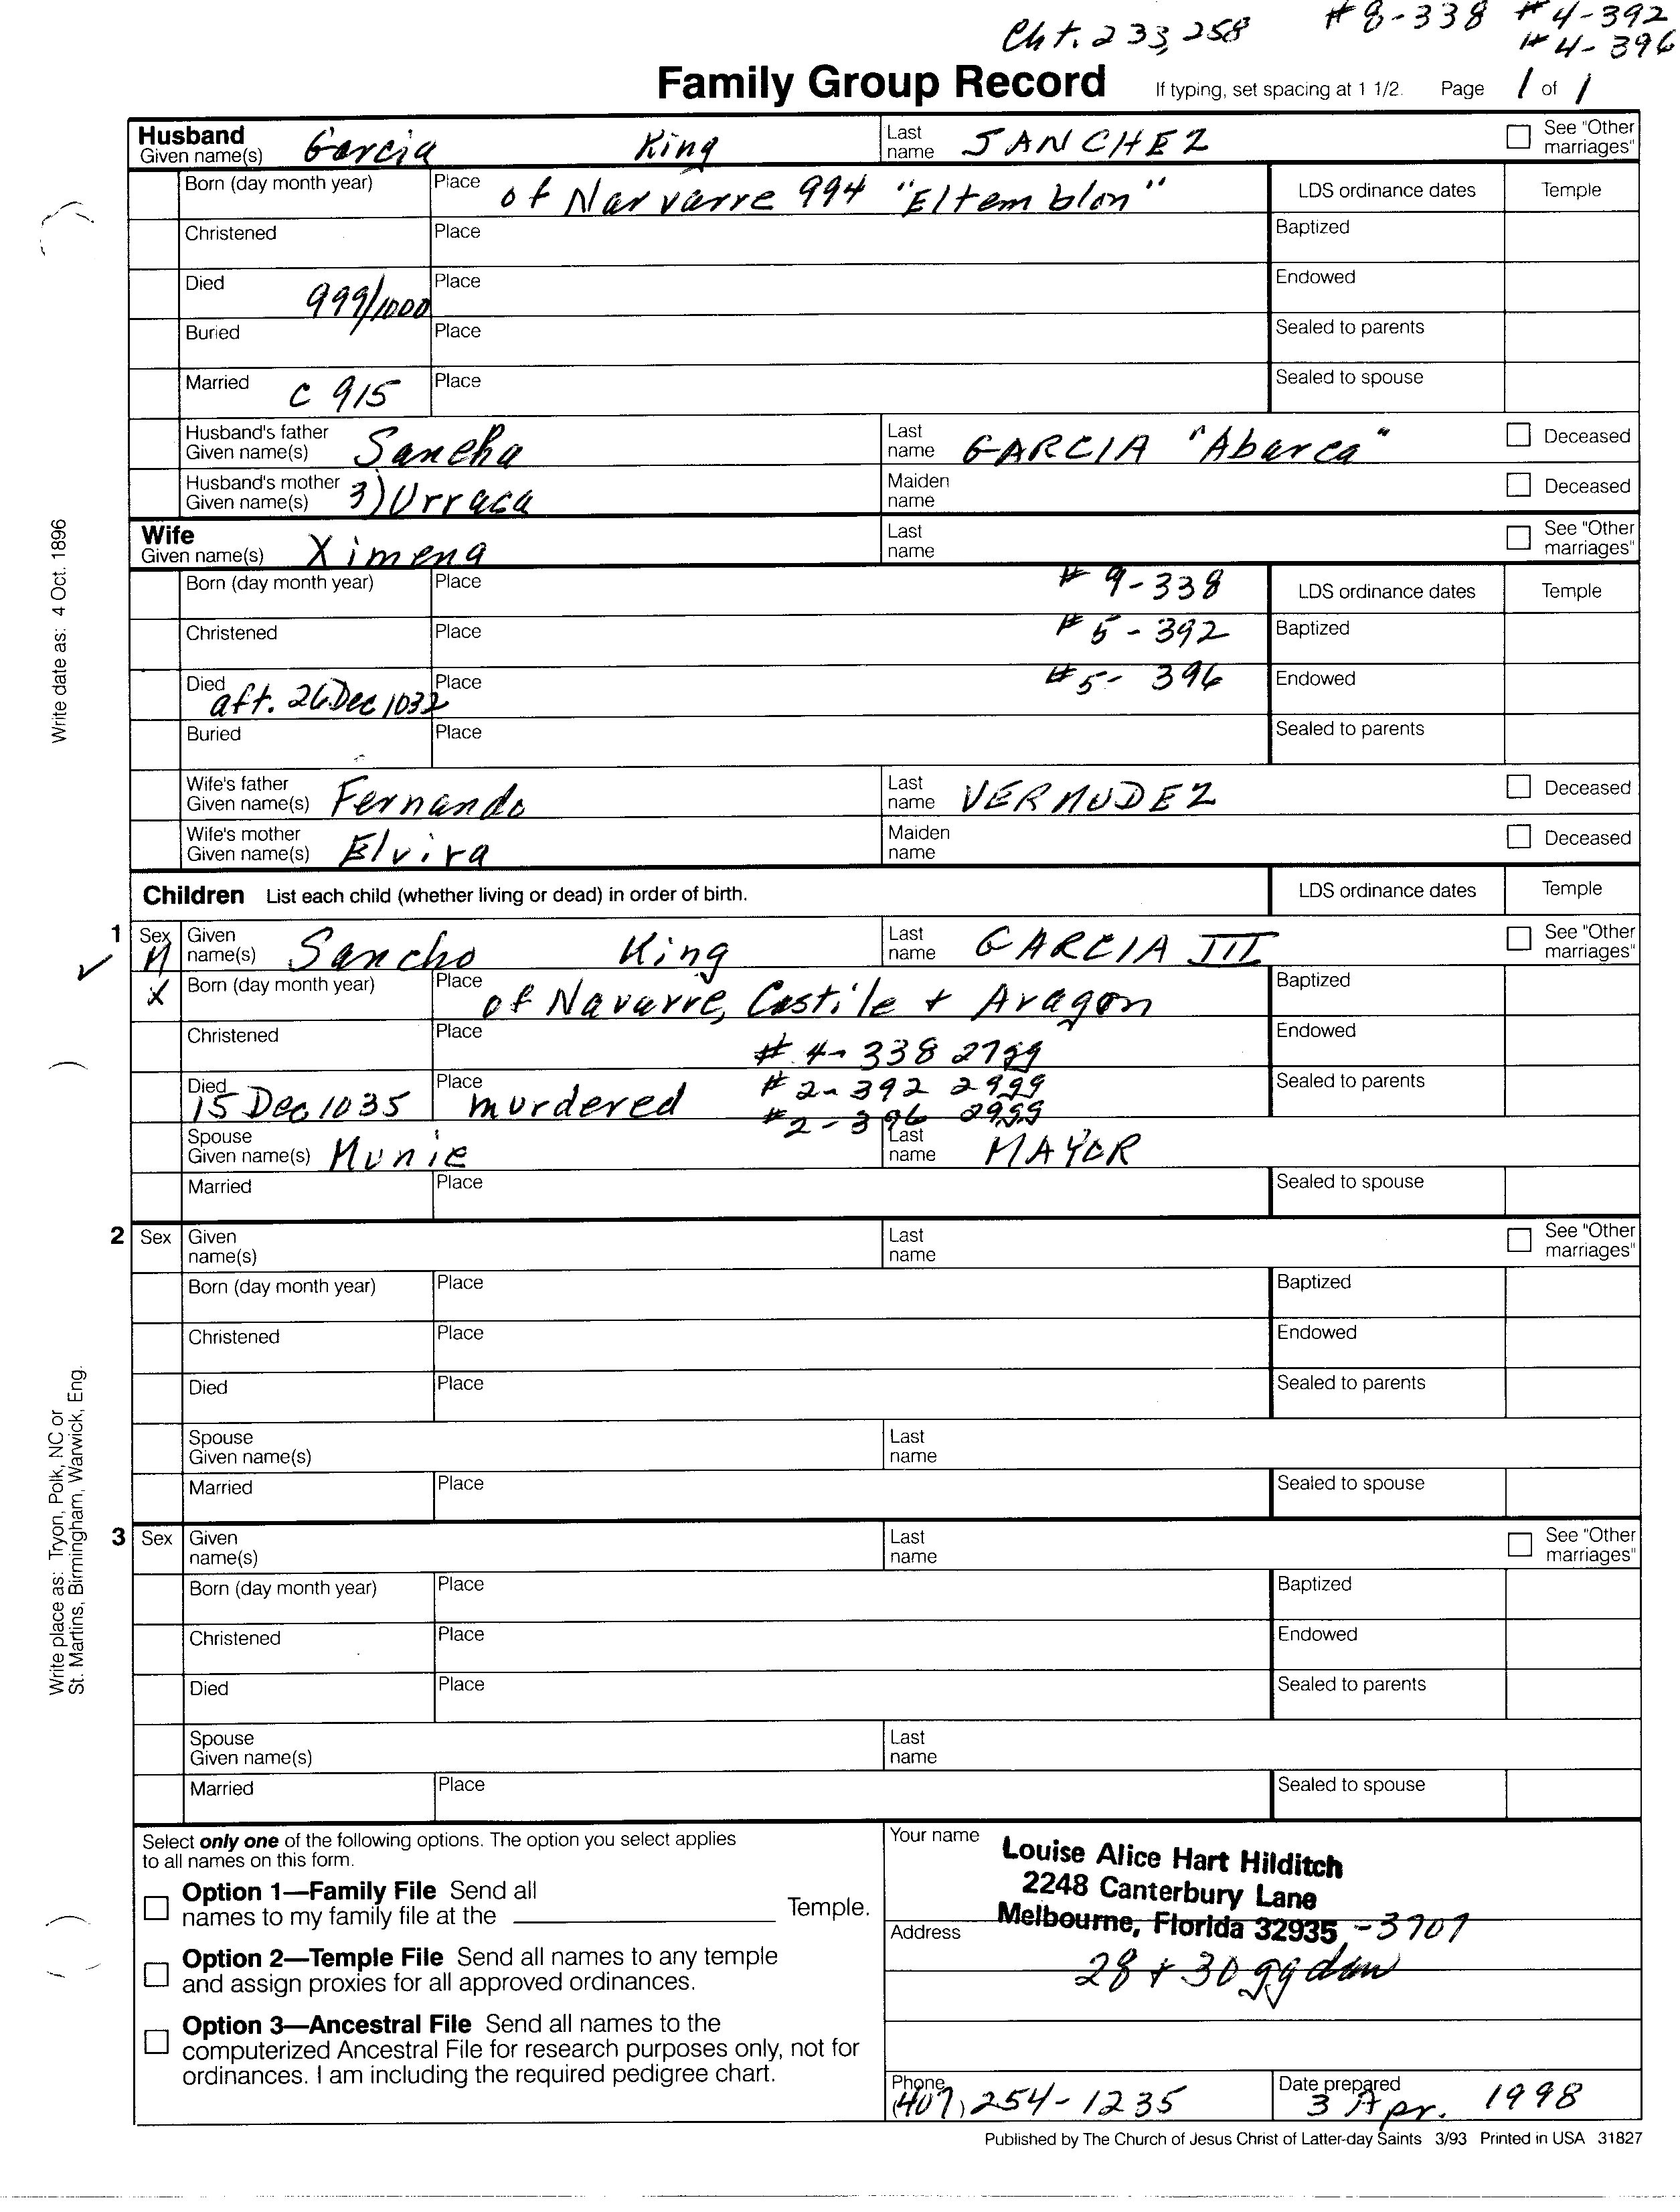 Cht. 233, 258 #8-338 #4-392
#4-396
Family Group Record If typing, set spacing at 1 1/2. Page 1 of 1
Husband
Given name(s) Garcia King Last name SANCHEZ See "Other marriages"
Born (day month year) Place of Narvarre 994 "Eltemblon" LDS ordinance dates Temple
Christened Place Baptized
Died 999/1000 Place Endowed
Buried Place Sealed to parents
Married C 915 Place Sealed to spouse
Husband's father Given name(s) Sancha Last name GARCIA "Abarca" Deceased
Husband's mother Given name(s) 3) Urraca Maiden name Deceased
Wife
Given name(s) Ximena Last name See "Other marriages"
Born (day month year) Place #9-338 LDS ordinance dates Temple
Christened Place #5-392 Baptized
Died aft. 26 Dec 1032 Place #5-396 Endowed
Buried Place Sealed to parents
Wife's father Given name(s) Fernando Last name VERMUDEZ Deceased
Wife's mother Given name(s) Elvira Maiden name Deceased
Children List each child (whether living or dead) in order of birth. LDS ordinance dates Temple
1 Sex M Given name(s) Sancho King Last name GARCIA III See "Other marriages"
X Born (day month year) Place of Navarre, Castile + Aragon Baptized
Christened Place #4-338 27gg Endowed
Died 15 Dec 1035 Place murdered #2-392 29gg Sealed to parents
#2-396 29gg
Spouse Given name(s) Munie Last name MAYOR
Married Place Sealed to spouse
2 Sex Given name(s) Last name See "Other marriages"
Born (day month year) Place Baptized
Christened Place Endowed
Died Place Sealed to parents
Spouse Given name(s) Last name
Married Place Sealed to spouse
3 Sex Given name(s) Last name See "Other marriages"
Born (day month year) Place Baptized
Christened Place Endowed
Died Place Sealed to parents
Spouse Given name(s) Last name
Married Place Sealed to spouse
Write date as: 4 Oct. 1896
Write place as: Tryon, Polk, NC or
St. Martins, Birmingham, Warwick, Eng.
Select only one of the following options. The option you select applies
to all names on this form.
Option 1—Family File Send all
names to my family file at the Temple.
Option 2—Temple File Send all names to any temple
and assign proxies for all approved ordinances.
Option 3—Ancestral File Send all names to the
computerized Ancestral File for research purposes only, not for
ordinances. I am including the required pedigree chart.
Your name Louise Alice Hart Hilditch
2248 Canterbury Lane
Address Melbourne, Florida 32935-3707
28 + 30 gg dau
Phone (407) 254-1235 Date prepared 3 Apr. 1998
Published by The Church of Jesus Christ of Latter-day Saints 3/93 Printed in USA 31827